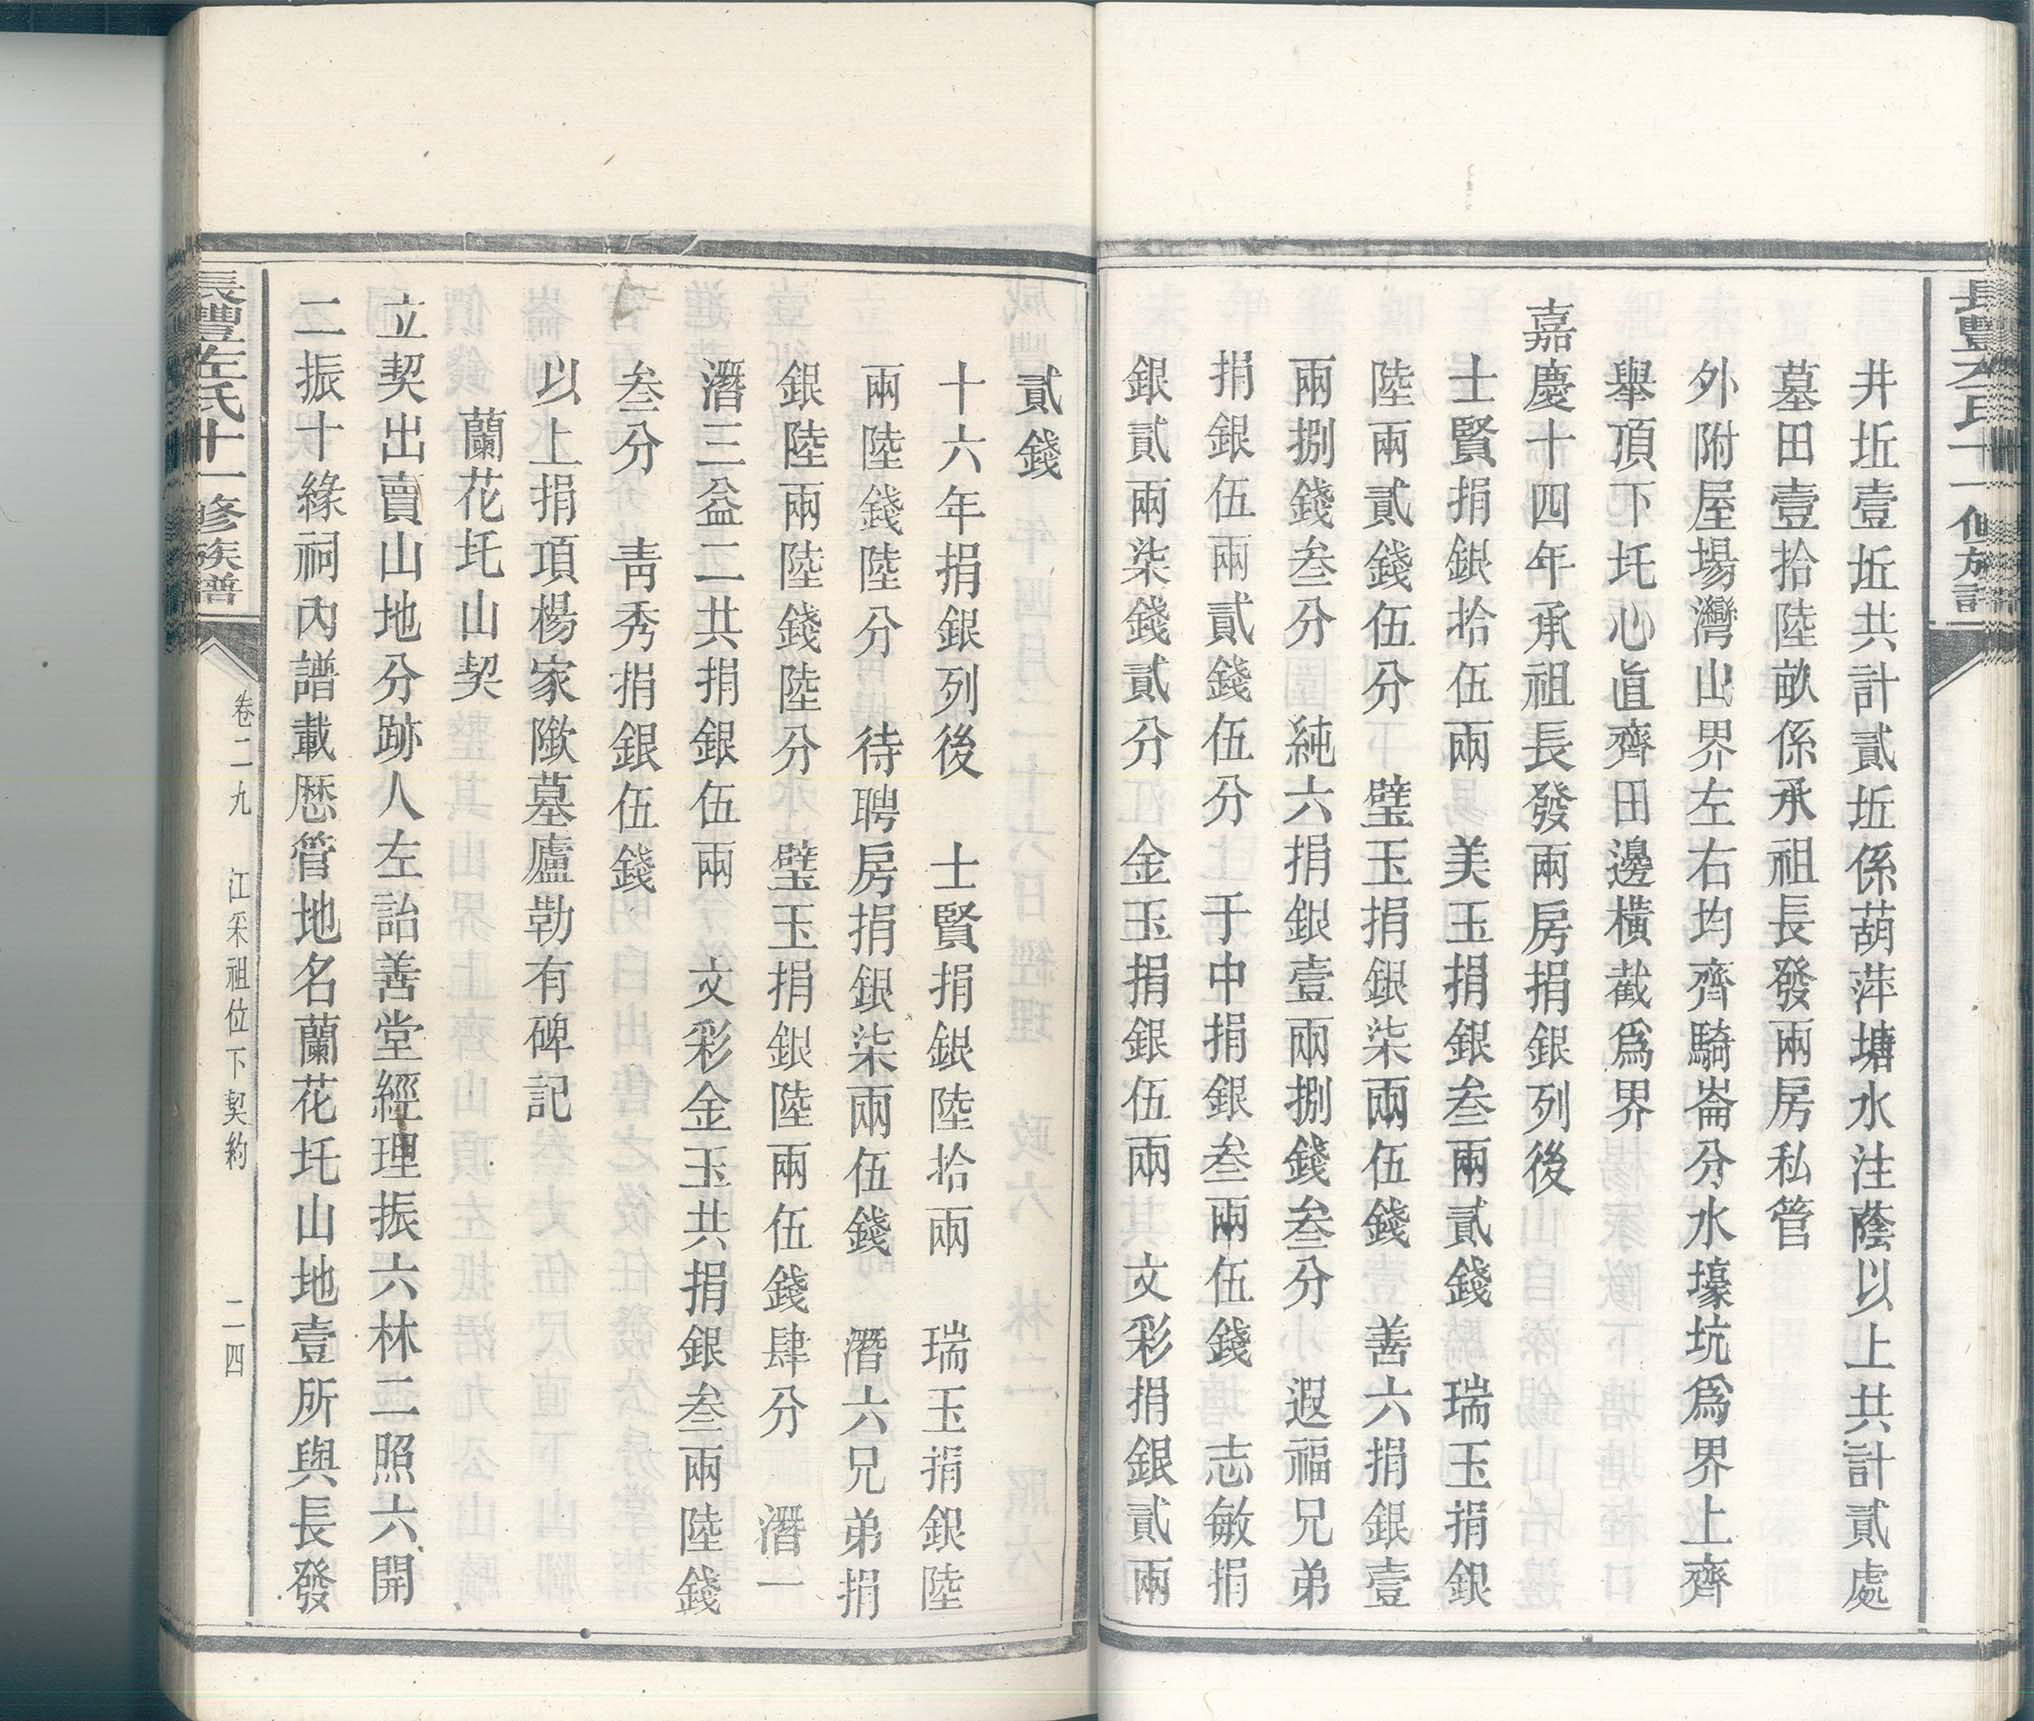 長豐左氏十一修族譜
井坵壹坵共計貳坵係葫萍塘水注蔭以上共計貳處
墓田壹拾陸畝係承祖長發兩房私管
外附屋場灣山界左右均齊騎崙分水壕坑爲界上齊
舉頂下圫心直齊田邊橫截爲界
嘉慶十四年承祖長發兩房捐銀列後
士賢捐銀拾伍兩　美玉捐銀叁兩貳錢　瑞玉捐銀
陸兩貳錢伍分　璧玉捐銀柒兩伍錢　善六捐銀壹
兩捌錢叁分　純六捐銀壹兩捌錢叁分　遐福兄弟
捐銀伍兩貳錢伍分　于中捐銀叁兩伍錢　志敏捐
銀貳兩柒錢貳分　金玉捐銀伍兩　文彩捐銀貳兩
貳錢
十六年捐銀列後　士賢捐銀陸拾兩　瑞玉捐銀陸
兩陸錢陸分　待聘房捐銀柒兩伍錢　潛六兄弟捐
銀陸兩陸錢陸分　璧玉捐銀陸兩伍錢肆分　潛一
潛三益二共捐銀伍兩　文彩金玉共捐銀叁兩陸錢
叁分　靑秀捐銀伍錢
以上捐項楊家隞墓廬勒有碑記
蘭花圫山契
立契出賣山地分跡人左詒善堂經理振六林二照六開
二振十緣祠內譜載歷管地名蘭花圫山地壹所與長發
長豐左氏十一修族譜
卷二九　江采祖位下契約　二四